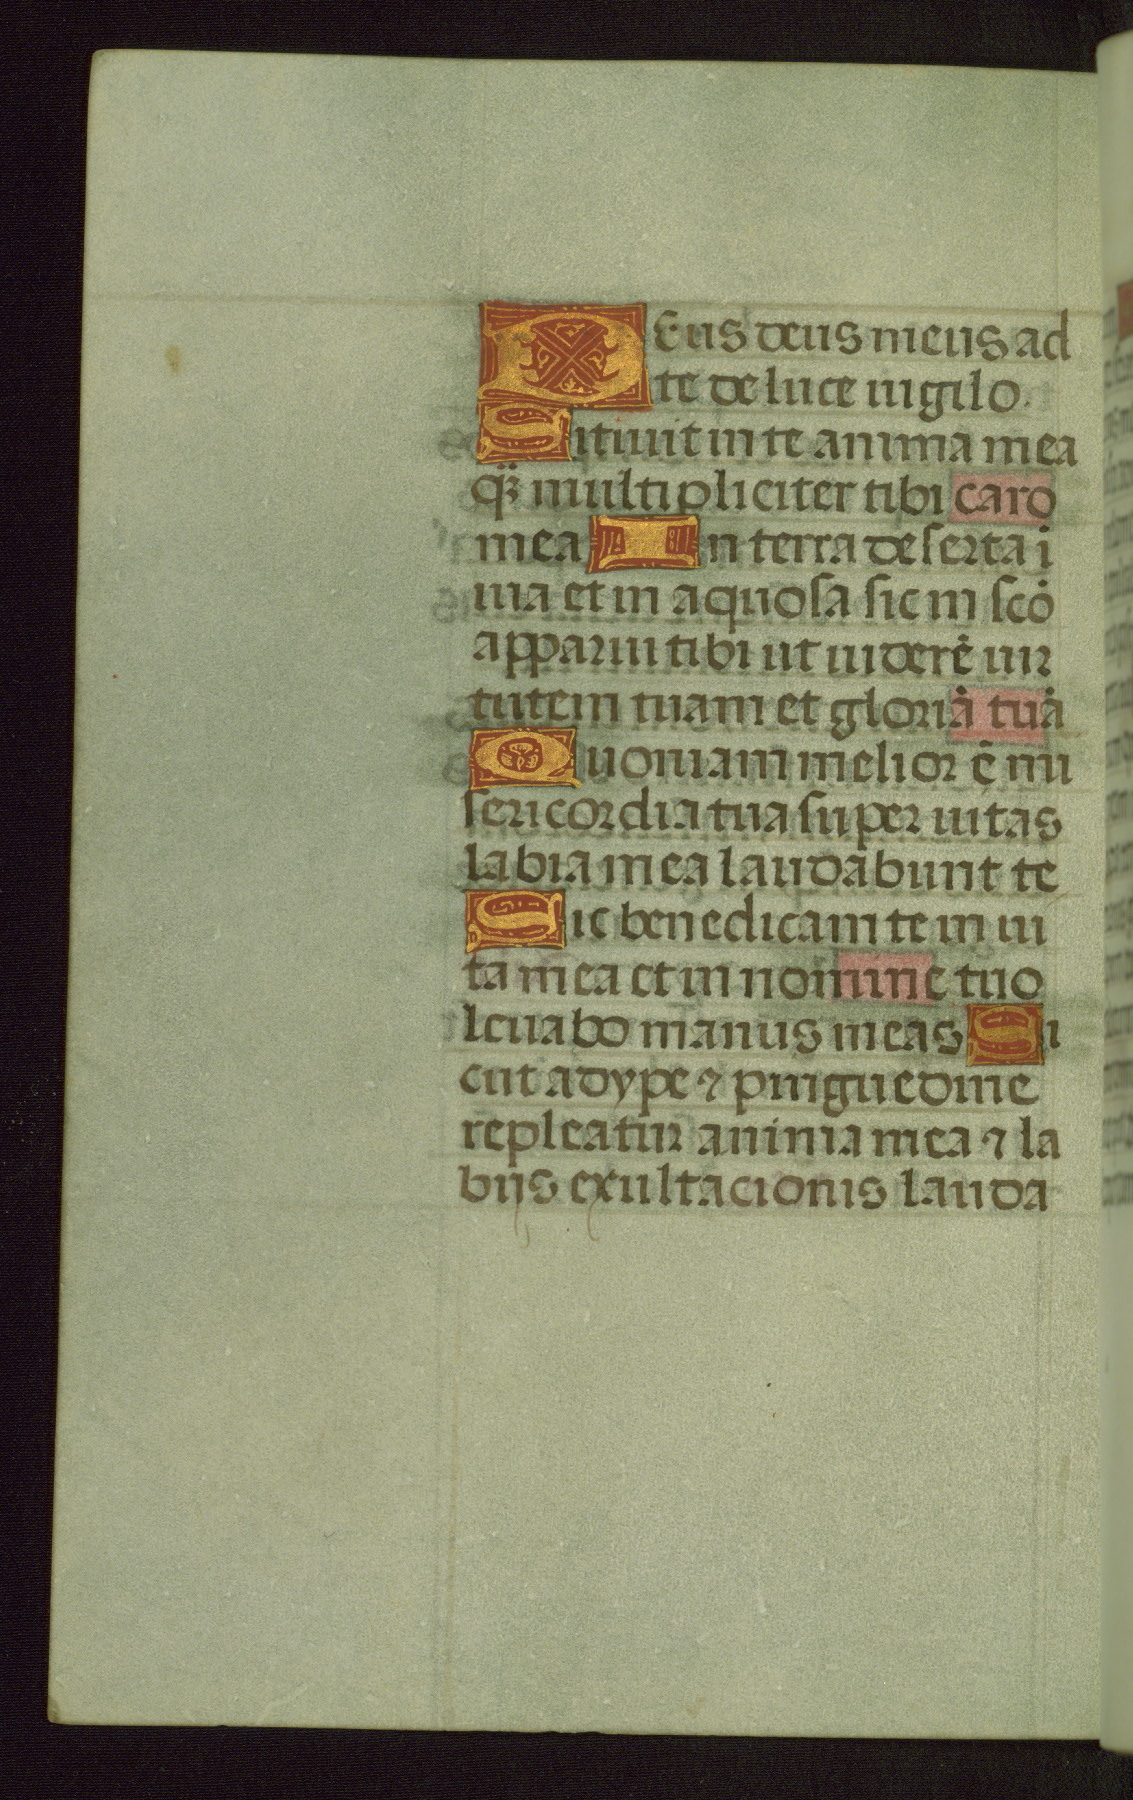 Deus deus meus ad
te de luce uigilo.
Sitiuit in te anima mea
q̃ȝ multipliciter tibi caro
mea In terra deserta i
uia et in aquosa sic in sc̄o
apparui tibi ut uiderē uir
tutem tuam et gloriā tuā
Quoniam melior ē mi
sericordia tua super uitas
labia mea laudabunt te
Sic benedicam te in ui
ta mea et in nomine tuo
leuabo manus meas Si
cut adype ⁊ pinguedine
repleatur anima mea ⁊ la
bijs exultacionis lauda